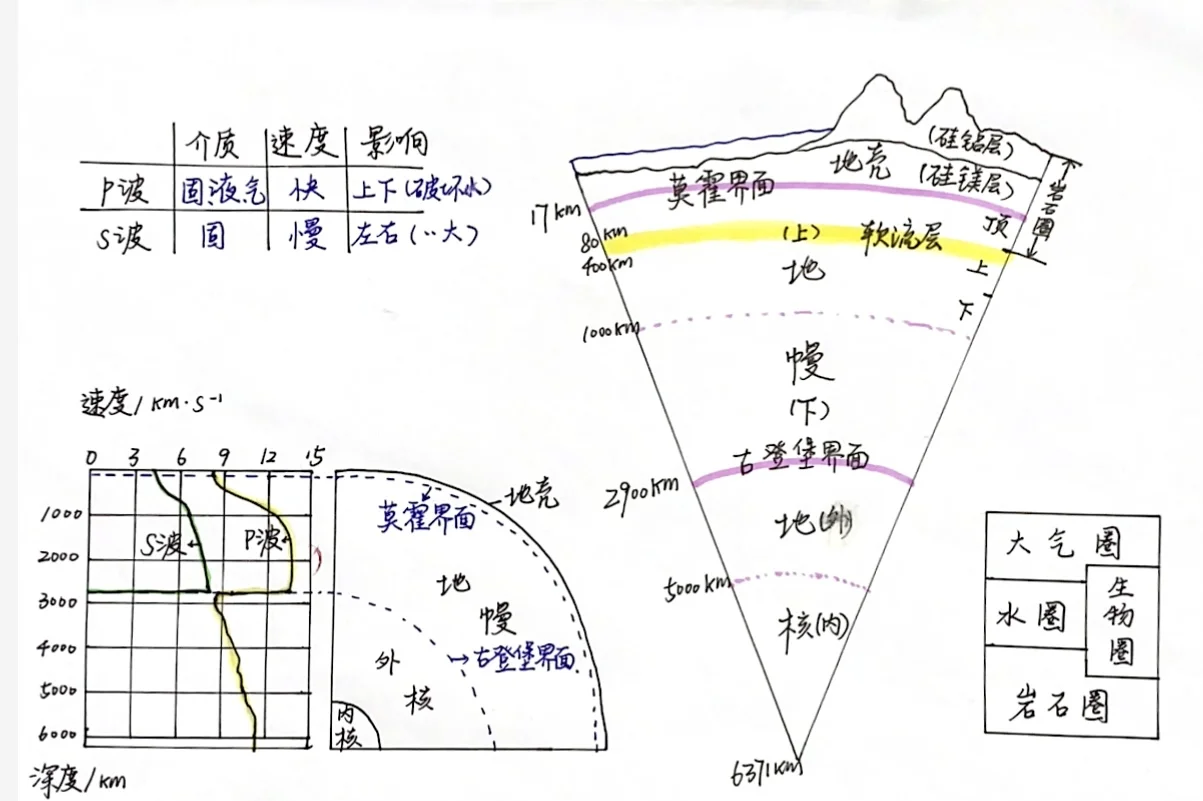 介质 速度 影响
P波 固液气 快 上下(破坏小)
S波 固 慢 左右(··大)
速度/km·s⁻¹
0 3 6 9 12 15
1000
2000
3000
4000
5000
6000
深度/km
S波 P波
地壳
莫霍界面
地
幔
古登堡界面
外
核
内
核
(硅铝层)
地壳 (硅镁层)
莫霍界面
岩石圈
17km
顶
80km
(上) 软流层
400km
上
地
下
1000km
幔
(下)
古登堡界面
2900km
地(外)
5000km
核(内)
6371km
大气圈
水圈
生物圈
岩石圈